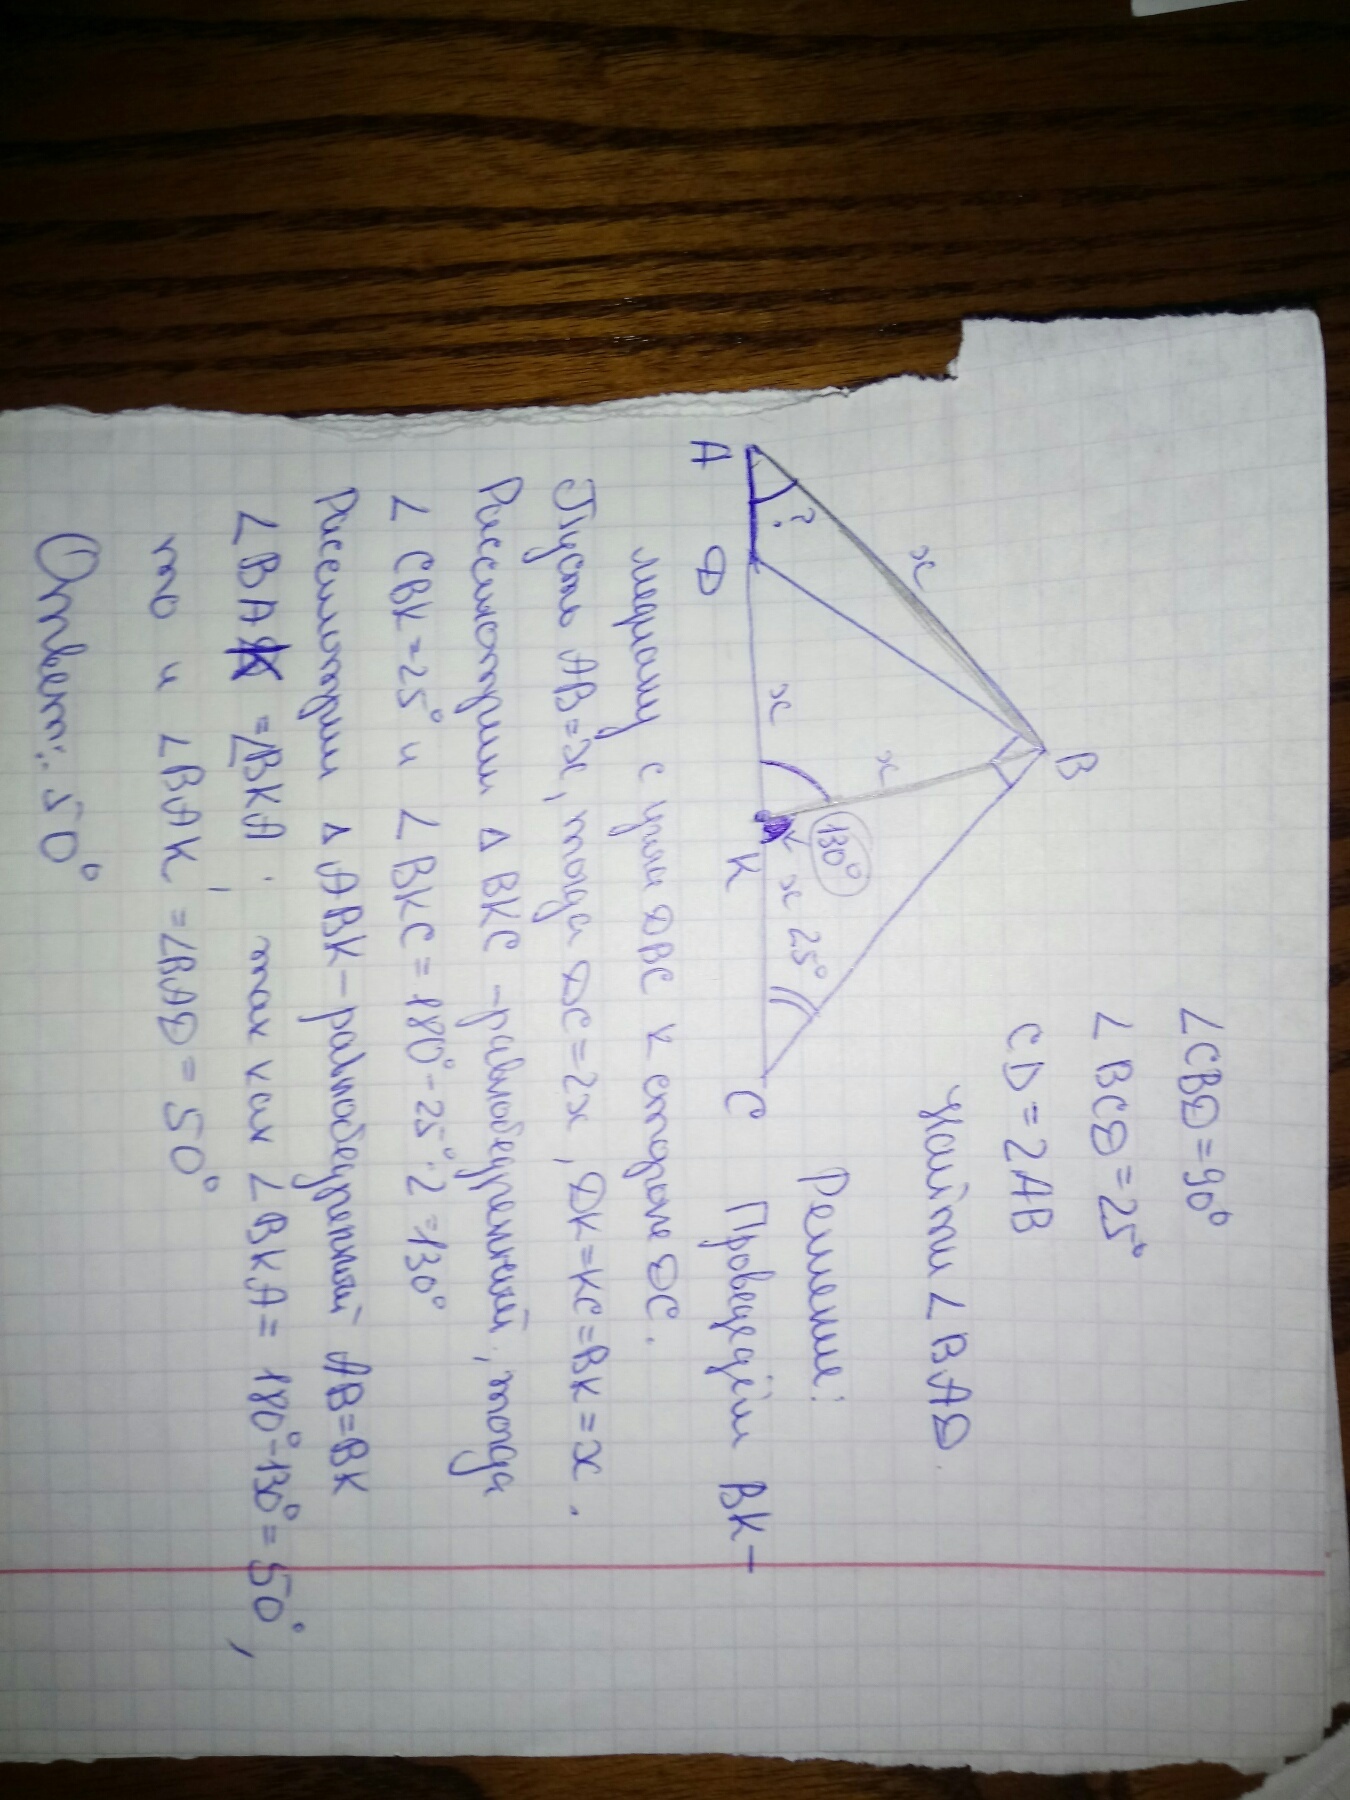 ∠CBD=90°
∠BCD=25°
CD=2AB
Найти ∠BAD.
B
x
?
x
x
130°
x 25°
A
D
K
C
Решение:
Проведедём BK-
медиану с угла DBC к стороне DC.
Пусть AB=x, тогда DC=2x, DK=KC=BK=x.
Рассмотрим △ BKC -равнобедренный, тогда
∠ CBK=25° и ∠ BKC = 180°-25°·2=130°
Рассмотрим △ ABK-равнобедренный AB=BK
∠BAK =∠BKA. так как ∠BKA= 180°-130°=50°,
то и ∠BAK =∠BAD= 50°
Ответ: 50°